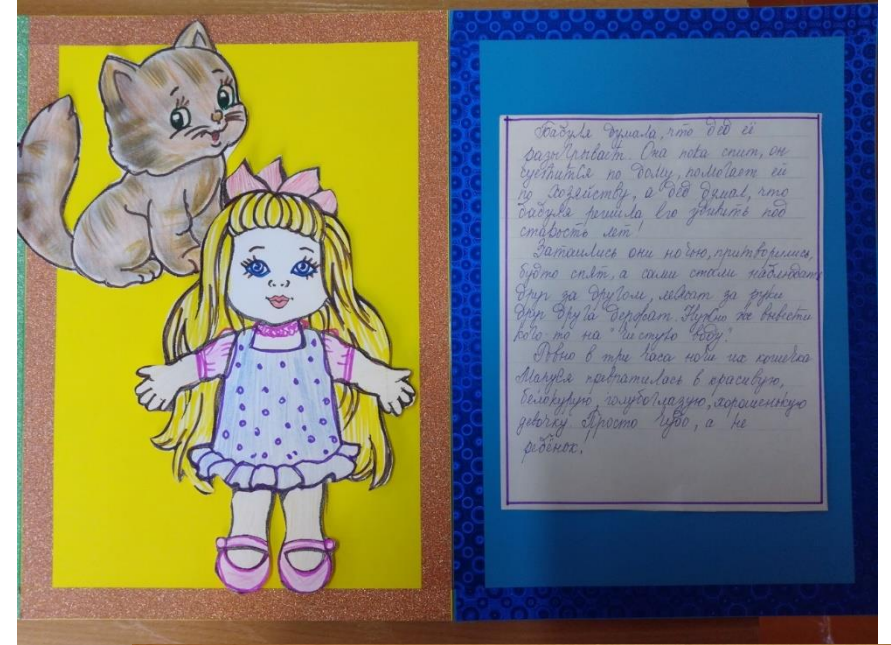 Бабуля думала, что дед её
разыгрывает. Она пока спит, он
суетится по дому, помогает ей
по хозяйству, а дед думал, что
бабуля решила его удивить под
старость лет!
Затаились они ночью, притворились,
будто спят, а сами стали наблюдать
друг за другом, лежат за руки
друг друга держат. Нужно же вывести
кого то на "чистую воду".
Ровно в три часа ночи их кошечка
Маруся превратилась в красивую,
белокурую, голубоглазую, хорошенькую
девочку. Просто чудо, а не
ребёнок.